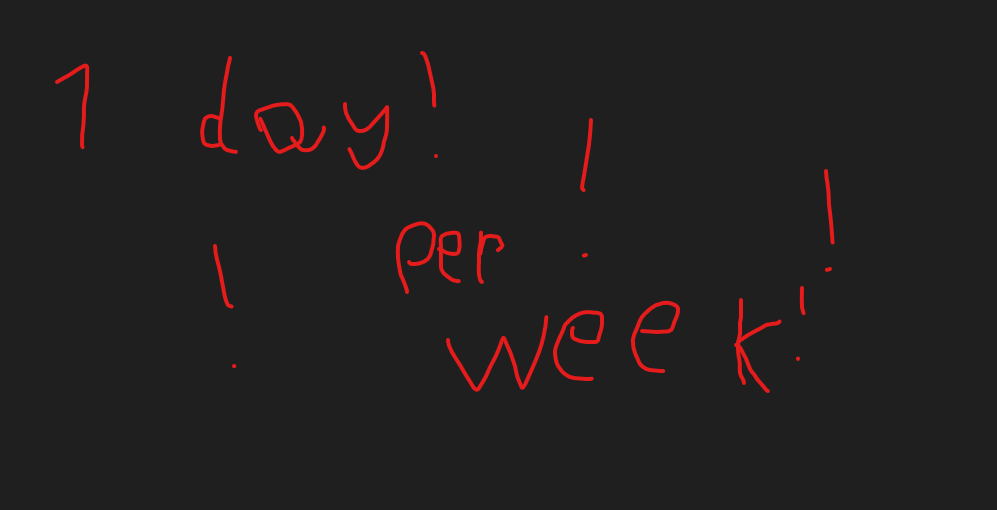 1 day!
! per !
week! !